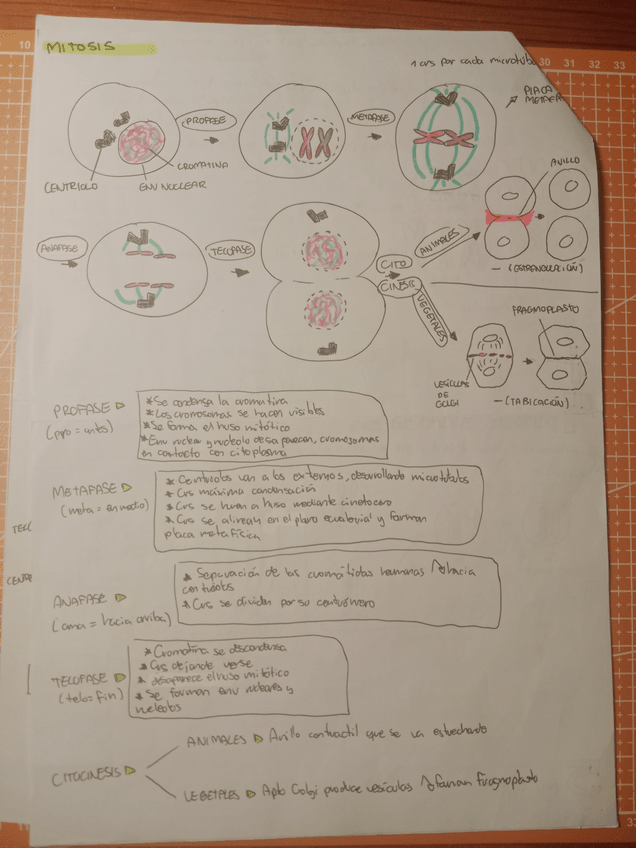 MITOSIS
1 crs por cada microtúb
PLACA
METAFA
PROFASE
METAFASE
CENTRIOLO
CROMATINA
ENV NUCLEAR
ANILLO
ANAFASE
TELOFASE
CITO
CINESIS
ANIMALES
VEGETALES
(ESTRANGULACIÓN)
FRAGMOPLASTO
VESÍCULAS
DE
GOLGI
(TABICACIÓN)
PROFASE
(pro = antes)
*Se condensa la cromatina
*Los cromosomas se hacen visibles
*Se forma el huso mitótico
*Env nuclear y nucleolo desaparecen, cromosomas
en contacto con citoplasma
METAFASE
(meta = en medio)
* Centriolos van a los extremos, desarrollando microtúbulos
* Crs máxima condensación
* Crs se unen a huso mediante cinetocoro
* Crs se alinean en el plano ecuatorial y forman
placa metafísica
ANAFASE
(ana = hacia arriba)
* Separación de las cromátidas hermanas hacia
centriolos
* Crs se dividen por su centrómero
TELOFASE
(telo = fin)
* Cromatina se descondensa
* Crs dejan de verse
* desaparece el huso mitótico
* Se forman env nucleares y
nucleolos
CITOCINESIS
ANIMALES Anillo contráctil que se va estrechando
VEGETALES Apto Golgi produce vesículas forman fragmoplasto
10 30 31 32 33
TELO
CENTR
33